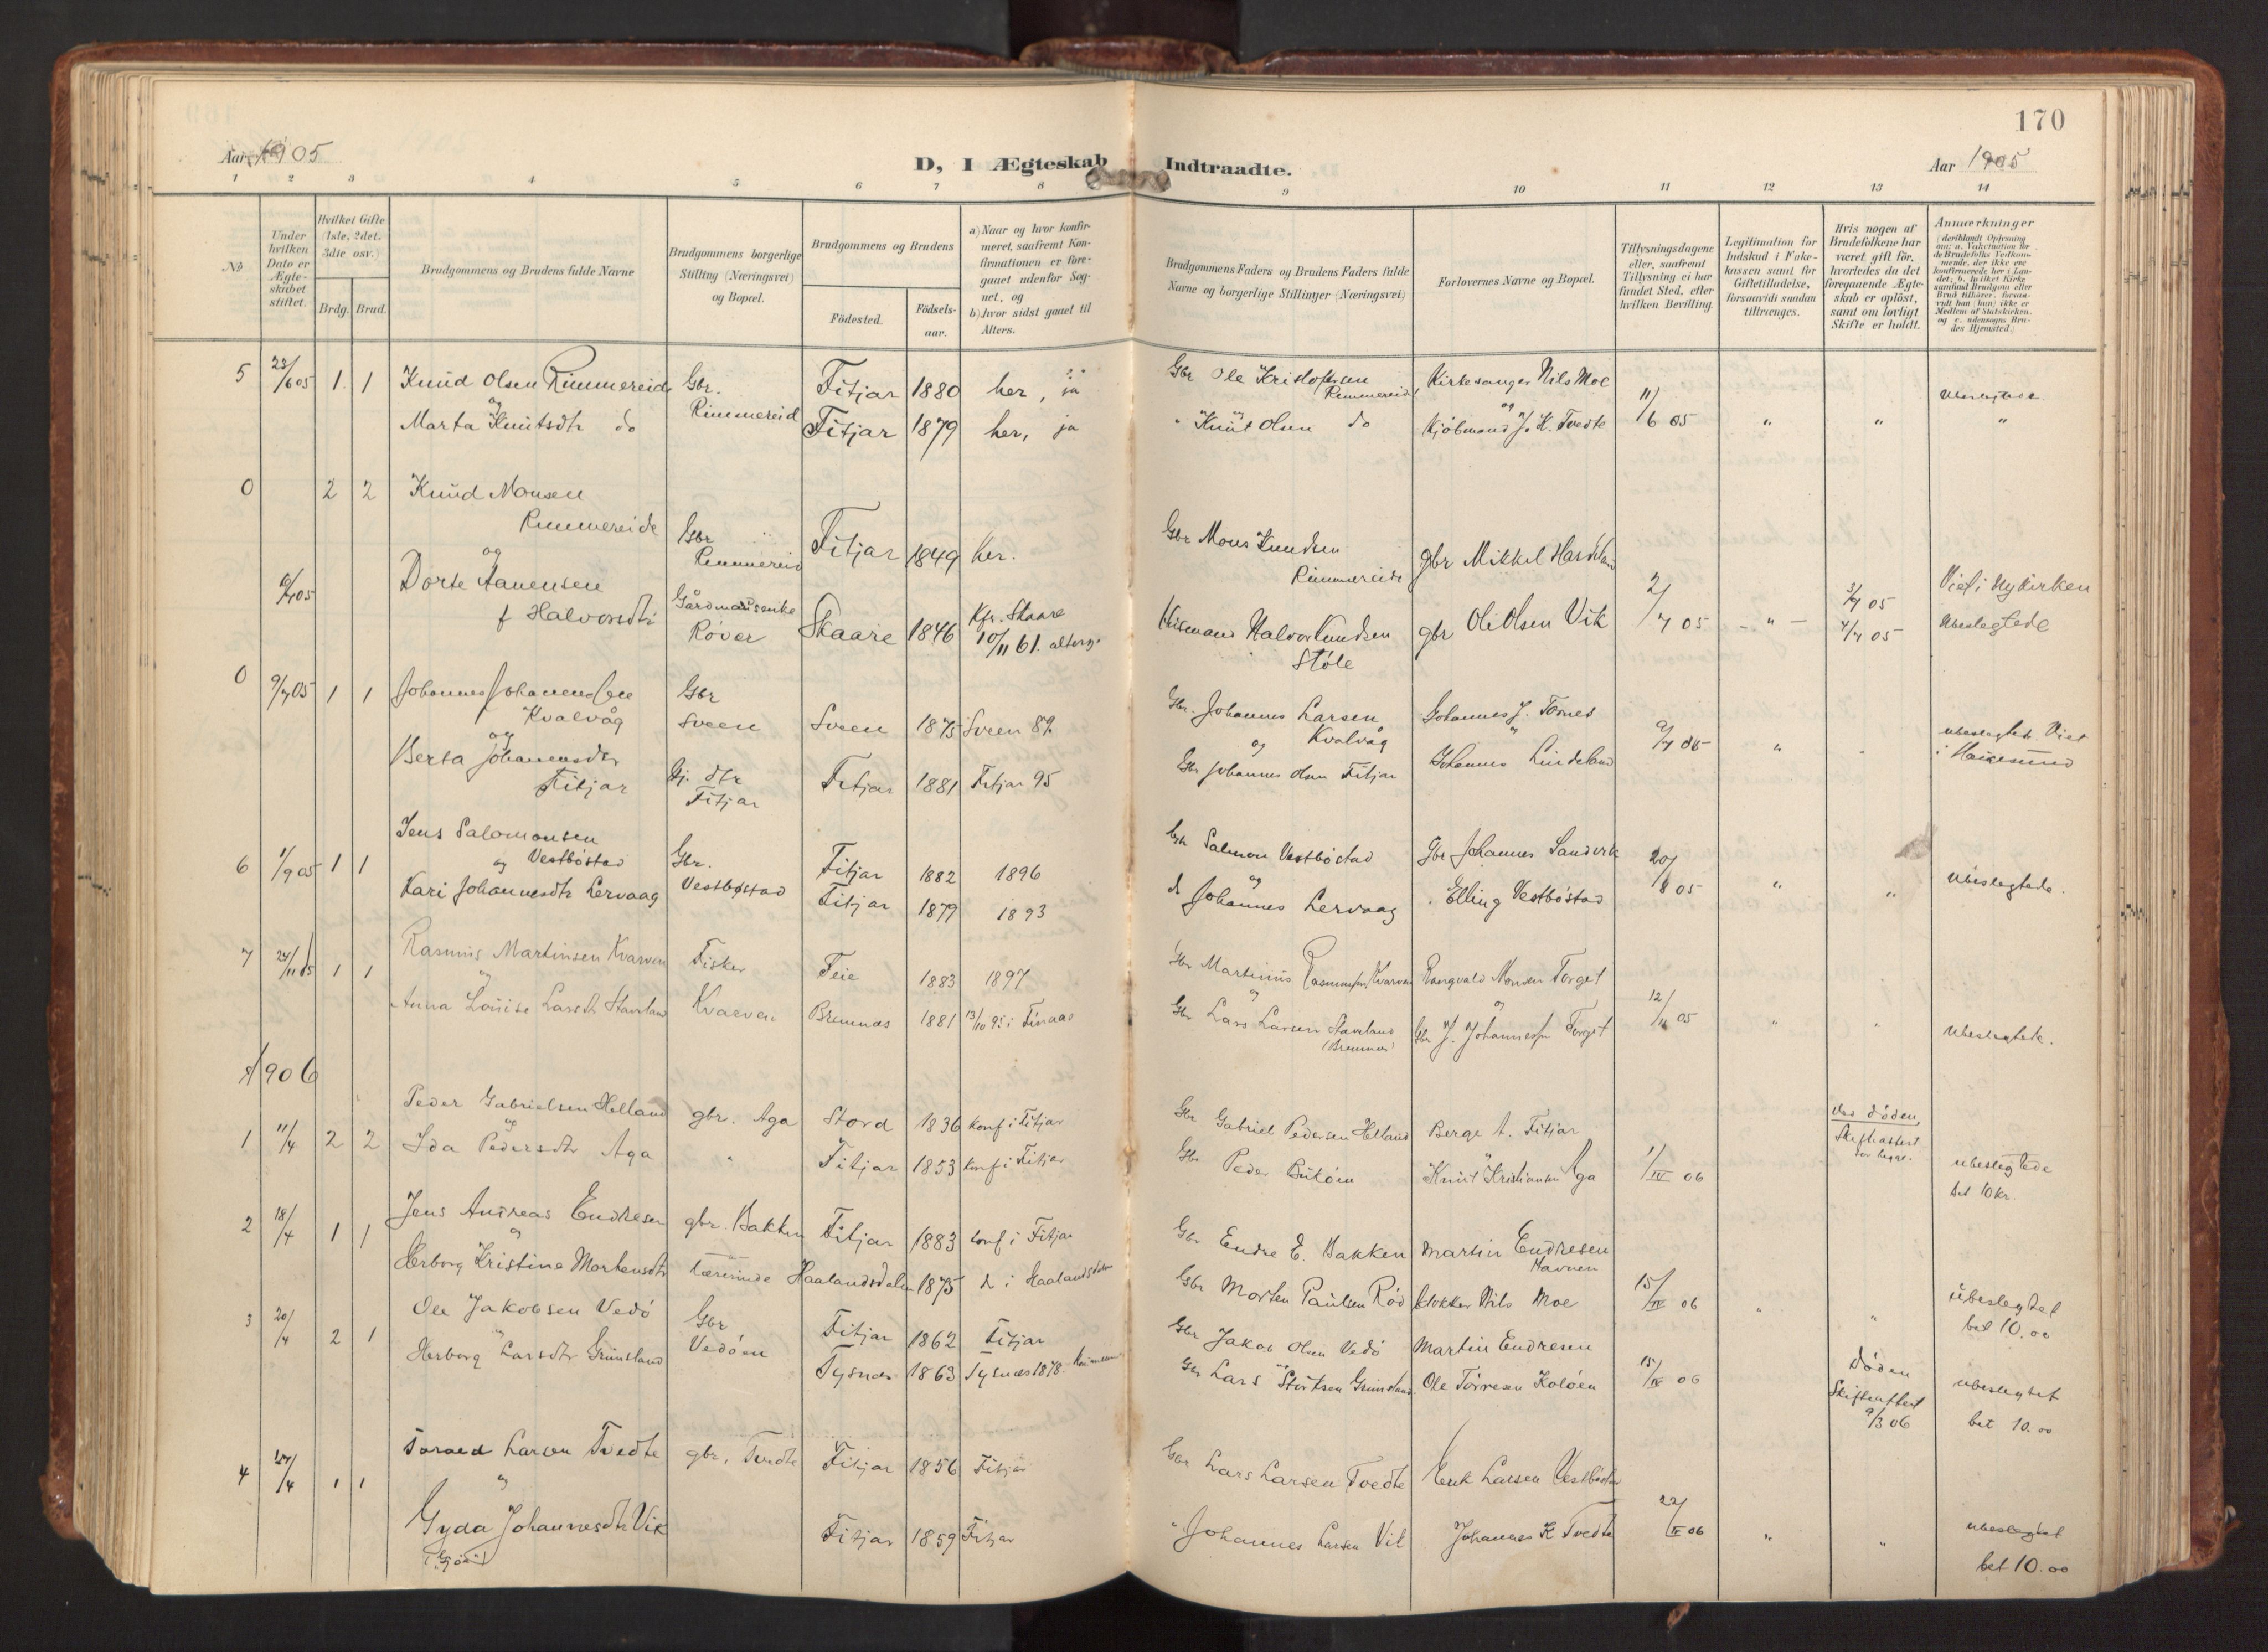 170
Aar 1905
D, I Ægteskab Indtraadte.
Aar 1905
1 2 3 4 5 6 7 8 9 10 11 12 13 14
No
Under hvilken Dato er Ægteskabet stiftet.
Hvilket Gifte (1ste, 2det, 3die osv.)
Brdg. Brud.
Brudgommens og Brudens fulde Navne
Brudgommens borgerlige Stilling (Næringsvei) og Bopæl.
Brudgommens og Brudens
Födested.
Födsels-aar.
a) Naar og hvor konfirmeret, saafremt Konfirmationen er foregaaet udenfor Sognet, og
b) hvor sidst gaaet til Alters.
Brudgommens Faders og Brudens Faders fulde Navne og borgerlige Stillinger (Næringsvei)
Forlovernes Navne og Bopæl.
Tillysningsdagene eller, saafremt Tillysning ei har fundet Sted, efter hvilken Bevilling.
Legitimation for Indskud i Enkekassen samt for Giftetilladelse, forsaavidt saadan tiltrænges.
Hvis nogen af Brudefolkene har været gift för, hvorledes da det foregaaende Ægteskab er oplöst, samt om lovligt Skifte er holdt.
Anmærkninger
5 23/6 05 1 1 Knud Olsen Rimmereid Gbr. Fitjar 1880 her, ja Gbr Ole Kristofersen Rimmereid, Kirkesanger Nils Moe
og Rimmereid 11/6 05
Marta Knutsdtr do Fitjar 1879 her, ja " Knut Olsen do og Kjöbmand J. K. Tvedte " " "
0 2 2 Knud Monsen
Rimmereide Gbr Rimmereid Fitjar 1849 her. Gbr Mons Knudsen Rimmereide gbr Mikkel
og
9/7 05 Dorte f Halvorsdtr Gårdmandsenke Röver Skaare 1846 Kfr. Skaare 10/11 61. Halvor Knudsen Støle gbr Ole Olsen Vik 2/7 05 - " - 3/7 05 4/7 05 Viet i Nykirken Ubeslegtede
0 9/7 05 1 1 Johannes Johannessen Kvalvåg Gbr Sveen Sveen 1875 Sveen 89. Gbr. Johannes Larsen Kvalvåg Johannes J. Tornes 9/7 05 " ubeslegtet. Viet i Haugesund
og
Berta Johannesdtr Fitjar Gj. dtr Fitjar Fitjar 1881 Fitjar 95 Gbr Johannes Olsen Fitjar Johannes Lindeland
6 1/9 05 1 1 Jens Salomonsen Vestböstad Gbr. Vestbøstad Fitjar 1882 1896 Gbr Salmon Vestböstad Gbr Johannes Sandvik 20/8 05 " " Ubeslegtede.
og
Kari Johannesdtr Lervaag Fitjar 1879 1893 do Johannes Lervaag " Elling Vestböstad
7 24/11 05 1 1 Rasmus Martinsen Kvarven Fisker Kvarven Feie 1883 1897 Gbr Martinus Rasmussen Kvarven Rangvald Monsen Torget 12/11 05 " " Ubeslegtede.
og
Anna Louise Larsdtr Stavland Bremnes 1881 13/10 95 i Finaas Gbr Lars Larsen Stavland (Bremnes) Gbr J. Johannessen Torget
1906
1 11/4 2 2 Peder Gabrielsen Helland gbr. Aga Stord 1836 konf i Fitjar Gbr Gabriel Pedersen Helland Berge A. Fitjar 1/IV 06 Ved döden, Skifteattest for begge. ubeslegtede bet 10 kr.
og
Ida Pedersdtr Aga " Fitjar 1853 konf i Fitjar Gbr Peder Knut Kristiansen Aga
2 18/4 1 1 Jens Andreas Endresen gbr. Bakken Fitjar 1883 konf i Fitjar Gbr Endre E. Bakken Martin Endresen Havnen 15/IV 06 " " ubeslegtet bet 10.00
og
Herborg Kristine Mortensdtr Lærerinde Haalandsdalen 1875 d i Haalandsdalen Gbr Morten Paulsen Röd Klokker Nils Moe
3 20/4 2 1 Ole Jakobsen Vedö Gbr Vedöen Fitjar 1862 Fitjar Gbr Jakob Olsen Vedö Martin Endresen 15/IV 06 Döden Skifteattest 9/3 06 ubeslegtet bet 10.00
og
Herborg Larsdtr Grimsland Tysnes 1863 Tysnæs 1878. Gbr Lars Grimsland. Ole Tørresen Kolöen
4 27/4 1 1 Larsen Tvedte gbr, Tvedte Fitjar 1856 Fitjar Gbr Lars Larsen Tvedte Erik Larsen Vestböstad 22/IV 06 " " ubeslegtet bet 10.00
og
Gyda Johannesdtr Vik Fitjar 1859 Fitjar " Johannes Larsen Vik Johannes K Tvedte